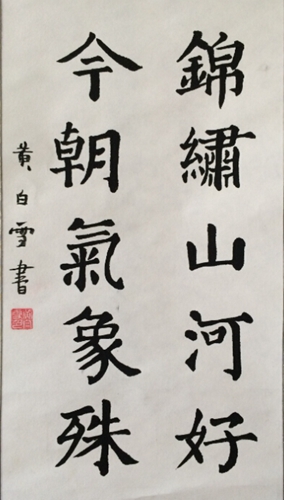 錦繡山河好
今朝氣象殊
黄白雪書